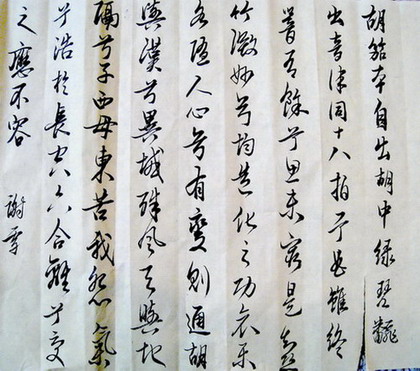 胡笳本自出胡中緣琴翻
出音律同十八拍兮曲雖終
響有餘兮思未窮是知絲
竹微妙兮均造化之功哀樂
各隨人心兮有變則通胡
與漢兮異域殊風天與地
隔兮子西母東苦我怨氣
兮浩於長空六合雖兮受
之應不容 謝